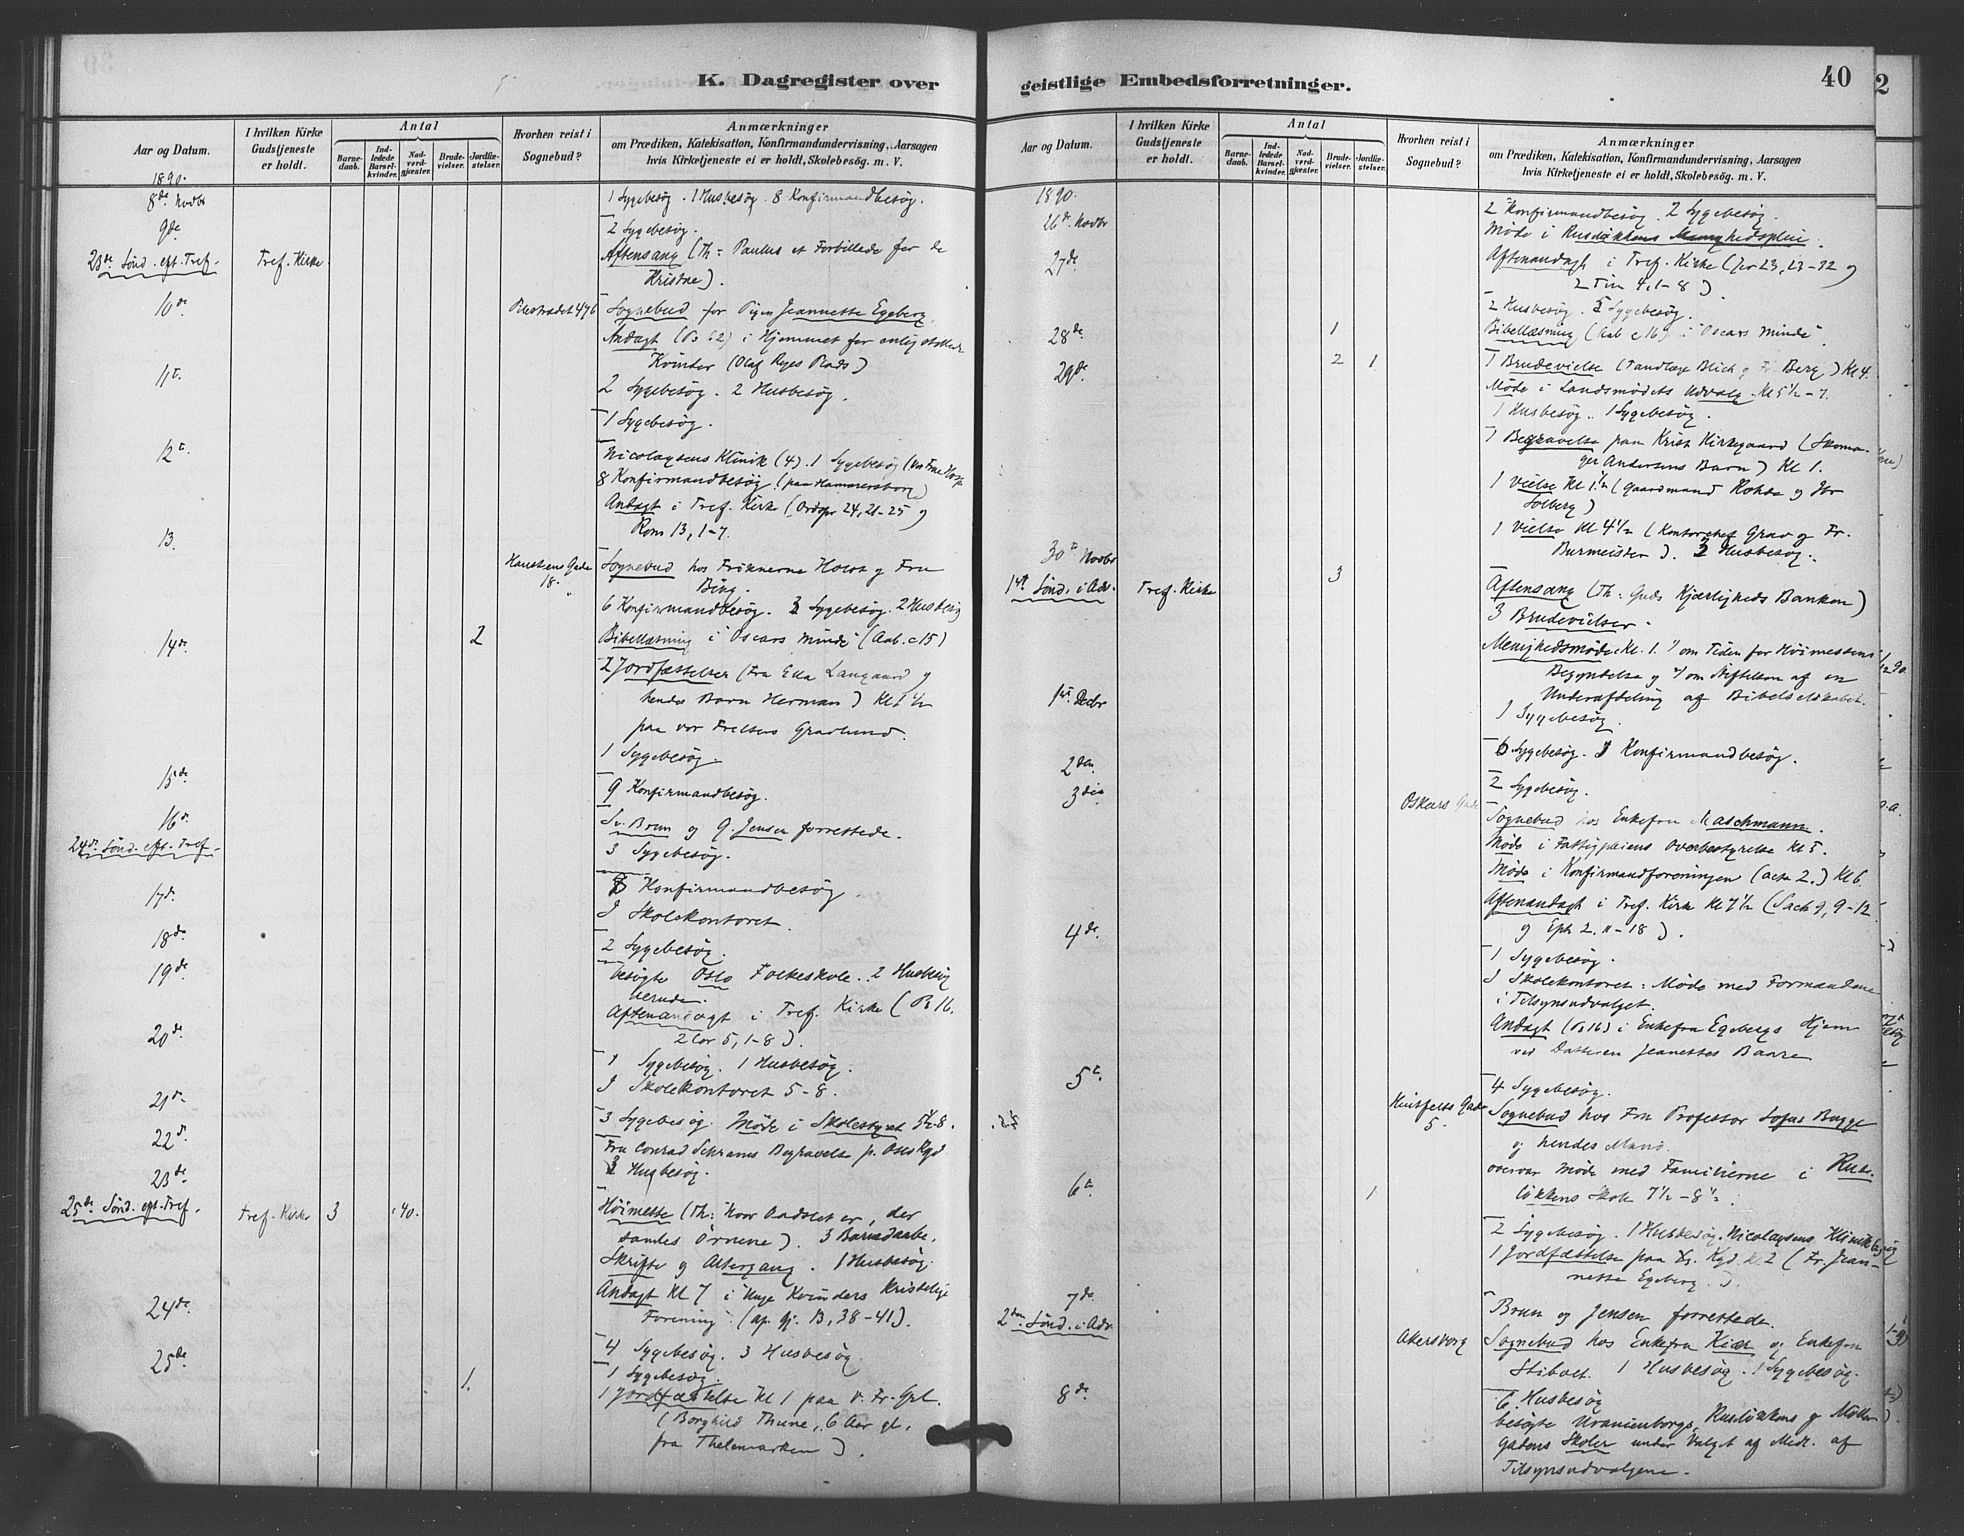 K. Dagregister over
Aar og Datum.
I hvilken Kirke
Gudstjeneste
er holdt.
Antal
Barne-
daab.
Ind-
ledede
Barsel-
kvinder.
Nad-
verd-
gjæster.
Brude-
vielser.
Jordfæ-
stelser.
Hvorhen reist i
Sognebud?
Anmærkninger
om Prædiken, Katekisation, Konfirmandundervisning, Aarsagen
hvis Kirketjeneste ei er holdt, Skolebesøg. m. V.
1890.
8de Novbr
1 Sygebesøg. 1 Husbesøg. 8 Konfirmandbesøg.
9de
2 Sygebesøg.
23de Sønd. eft. Tref.
Tref. Kirke
Aftensang (Th: Paulus et Forbillede for de
Kristne).
10de
Pilestrædet 476
Sognebud for Pigen Jeannette Egeberg.
Andagt (Ps 62) i Hjemmet for enlig
Kvinder (Olaf Ryes Plads)
11t.
2 Sygebesøg. 2 Husbesøg.
1 Sygebesøg.
12t.
Nicolaysens Klinik (4). 1 Sygebesøg
8 Konfirmandbesøg (paa Hammersborg)
Andagt i Tref. Kirke (Ordspr 24, 21-25 og
Rom 13, 1-7.
13.
Haustens Gade
18.
Sognebud hos Frøknerne Holst og Fru
Bing.
6 Konfirmandbesøg. 3 Sygebesøg. 2 Husbesøg
14de
2
Bibellæsning i "Oscars Minde" (Aab. c 15)
2 Jordfæstelser (Fru Ella Langaard og
hendes Barn Herman) Kl 1 1/2
paa vor Frelsers Gravlund.
1 Sygebesøg.
15de
9 Konfirmandbesøg.
16d.
Sv. Brun og G. Jensen forrettede.
24de Sønd. eft. Tref.
3 Sygebesøg.
17d.
Konfirmandbesøg.
I Skolekontoret.
18de
2 Sygebesøg.
19de
besøgte Oslo Folkeskole. 2 Husbesøg
derude.
Aftenandagt i Tref. Kirke (Ps 16.
2 Cor 5, 1-8).
20de
1 Sygebesøg. 1 Husbesøg.
I Skolekontoret 5-8.
21d.
3 Sygebesøg. Møde i Skolestyret 5 1/2-8.
22d.
Fru Conrad Schrams Begravelse p. Oslo Kgd
23de
Husbesøg.
25de Sønd. eft. Tref.
Tref. Kirke
3
40.
Høimesse (Th: Hvor Aadslet er, der
samles Ørnene). 3 Barnedaabe.
Skrifte og Altergang. 1 Husbesøg.
Andagt Kl 7 i Unge Kvinders kristelige
Forening (Ap. gj. 13, 38-41).
24de
4 Sygebesøg. 3 Husbesøg.
25de
1 Sygebesøg.
1.
1 Jordfæstelse Kl 1 paa V. Fr. Grl.
(Borghild Thune, 6 Aar gl.
fra Thelemarken).
geistlige Embedsforretninger.
40
Aar og Datum.
I hvilken Kirke
Gudstjeneste
er holdt.
Antal
Barne-
daab.
Ind-
ledede
Barsel-
kvinder.
Nad-
verd-
gjæster.
Brude-
vielser.
Jordfæ-
stelser.
Hvorhen reist i
Sognebud?
Anmærkninger
om Prædiken, Katekisation, Konfirmandundervisning, Aarsagen
hvis Kirketjeneste ei er holdt, Skolebesøg. m. V.
1890.
26de Novbr
2 Konfirmandbesøg. 2 Sygebesøg.
Møde i Ruseløkkens Menighedspleie.
27de
Aftenandagt i Tref. Kirke (Jer 23, 23-32 og
2 Tim 4, 1-8).
2 Husbesøg. 5 Sygebesøg.
28de
1
Bibellæsning (Aab c 16) i "Oscars Minde".
29de
2 1
1 Brudevielse (Tandlæge Blich og Fr. Berg) Kl 4.
Møde i Landsmødets Udvalg Kl 5 1/2 - 7.
1 Husbesøg. 1 Sygebesøg.
1 Begravelse paa Krist Kirkegaard (Skoma-
ger Andersens Barn) Kl 1.
1 Vielse Kl 1 1/2 (Gaardmand og
Solberg)
1 Vielse Kl 4 1/2 (Kontorchef Grav og Fr.
Burmeister). 2 Husbesøg.
30te Novbr
1ste Sønd. i Adv.
Tref. Kirke
3
Aftensang (Th: Guds Kjærligheds Banken)
3 Brudevielser.
Menighedsmøde Kl. 1. 1/ om Tiden for Høimessens
Begyndelse og 2/ om Stiftelsen af en
Underafdeling af Bibelselskabet.
1ste Decbr
1 Sygebesøg.
6 Sygebesøg. Konfirmandbesøg.
2den
2 Sygebesøg.
3die
Oskars Gade
Sognebud hos Enkefru Maschmann.
Møde i Fattigpleiens Overbestyrelse Kl 5.
Møde i Konfirmandforeningen (acta 2.) Kl 6.
Aftenandagt i Tref. Kirke Kl 7 1/2 (Sach 9, 9-12
og Eph 2, 11-18).
4de.
1 Sygebesøg.
I Skolekontoret: Møde med Formændene
i Tilsynsudvalget.
Andagt (Ps 16) i Enkefru Egebergs Hjem
ved Datteren Jeanettes Baare
5t.
4 Sygebesøg.
Huitfelts Gade
5.
Sognebud hos Fru Professor Sofus Bugge
og hendes Mand.
overvar Møde med Familierne i Ruse-
løkkens Skole 7 1/2 - 8 1/2.
6t.
1
2 Sygebesøg. 1 Husbesøg. Nicolaysens Klinik
1 Jordfæstelse paa Kgd Kl 2 (Fr. Jean-
nette Egeberg).
7de.
2den Sønd. i Adv.
Brun og Jensen forrettede.
Akersborg
Sognebud hos Enkefru Kiær og Enkefru
Stibolt. 1 Husbesøg. 1 Sygebesøg.
8de.
6 Husbesøg
besøgte Uranienborgs, Ruseløkkens og Møller-
gadens Skoler under Valget af Medl. af
Tilsynsudvalgene.
2